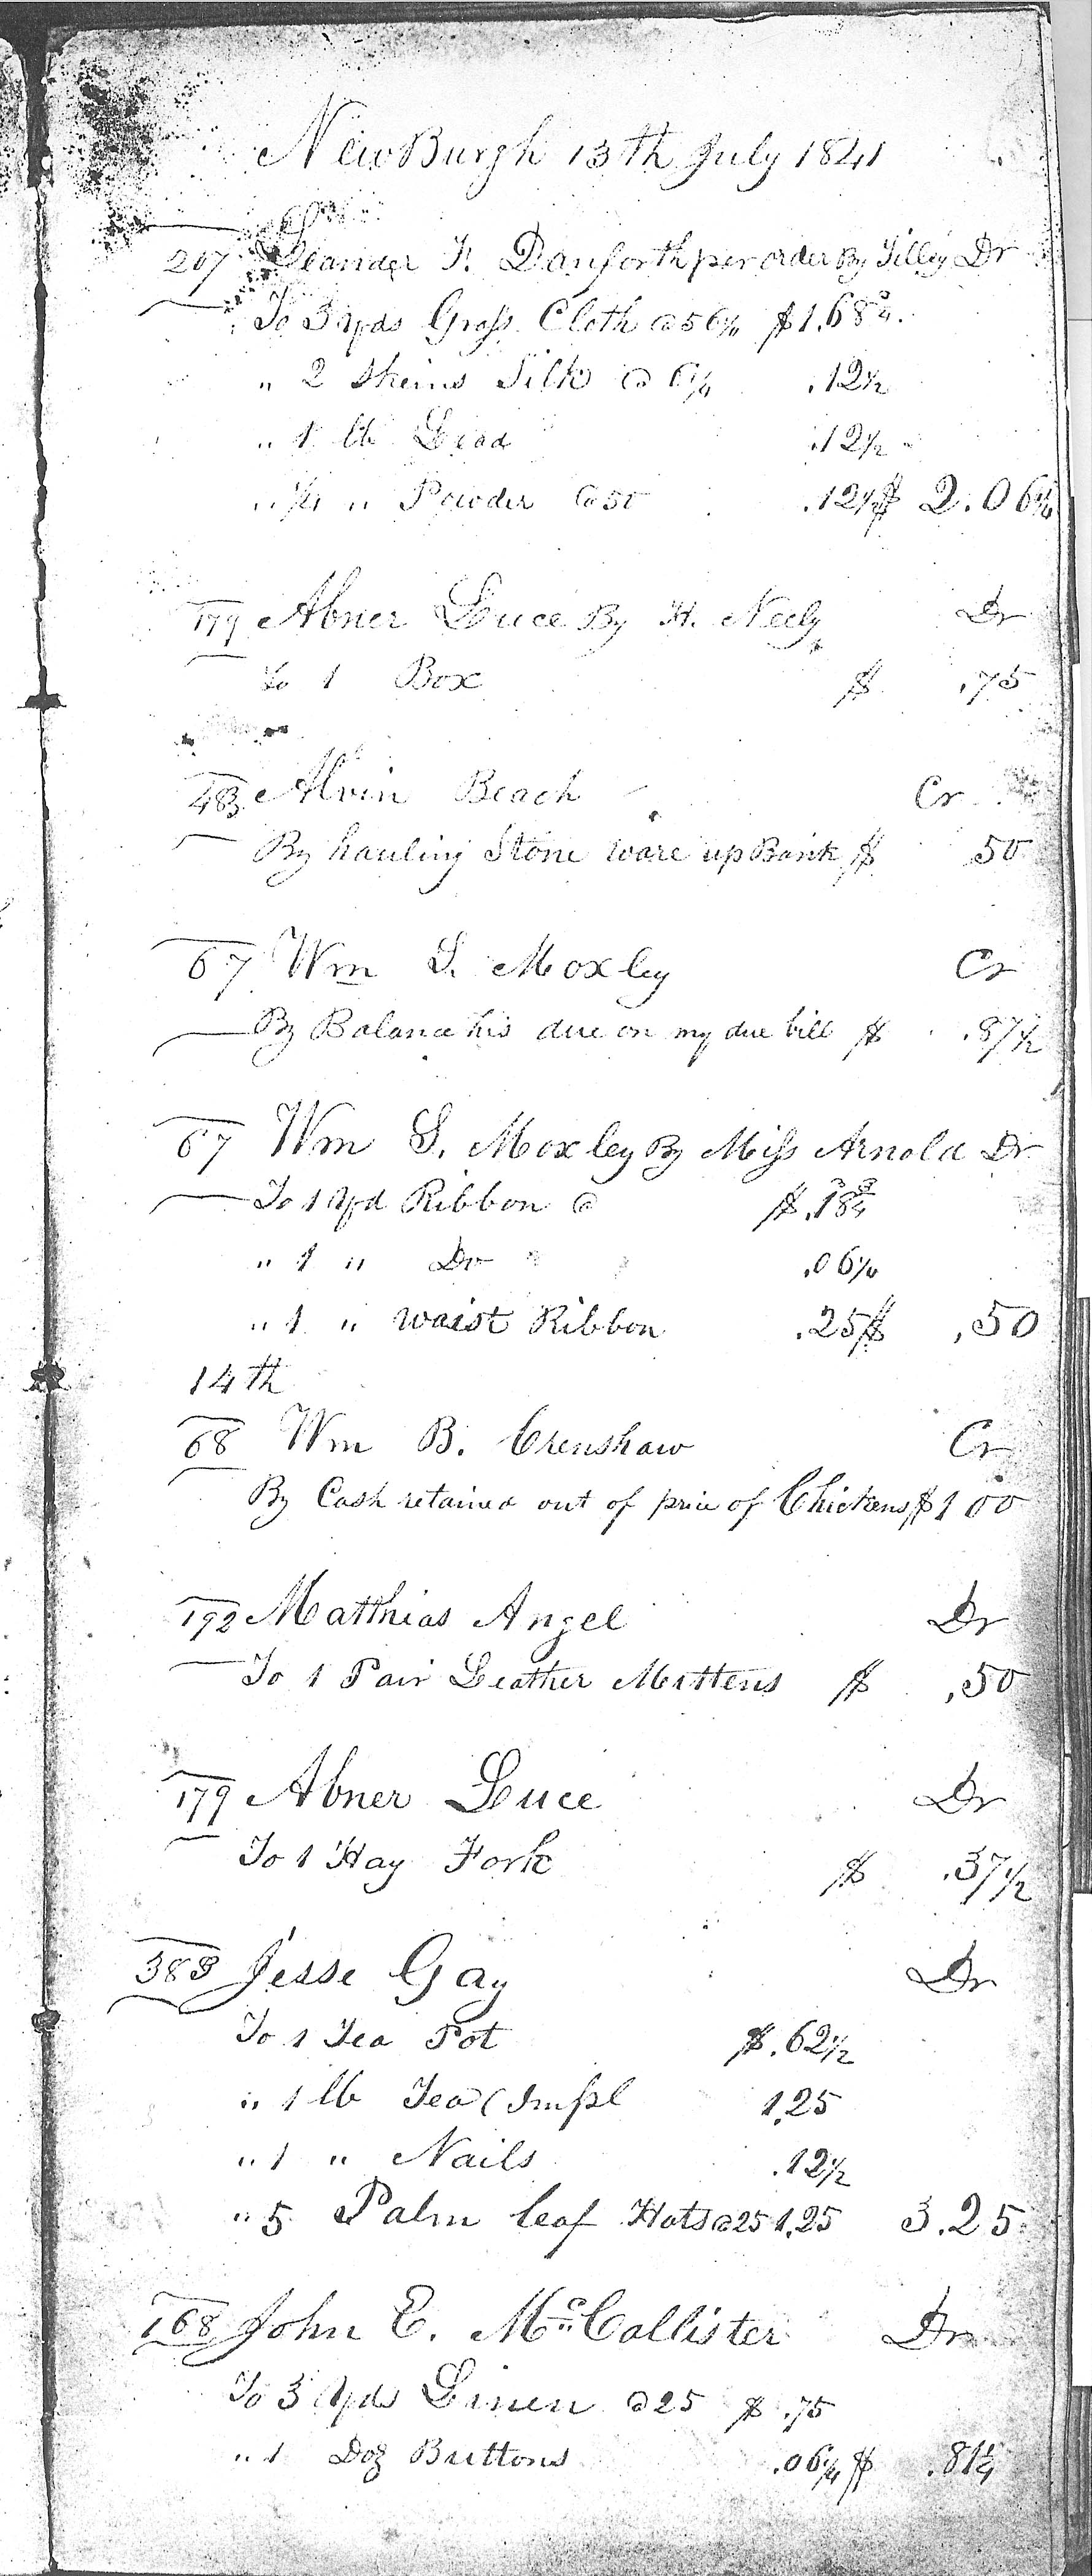 NewBurgh 13th July 1841
207 Leander F. Danforth per order By Tilley Dr
To 3 yds Grass Cloth @ 56¼ $1.68¾
" 2 Skeins Silk @ 6¼ .12½
" 1 lb Lead .12½
" ¼ " Powder @ 50 .12½ $ 2.06¼
179 Abner Luce By H. Neely Dr
To 1 Box $ .75
483 Alvin Beach Cr
By hauling Stone ware up Bank $ 50
67 Wm S. Moxley Cr
By Balance his due on my due bill $ .87½
67 Wm S. Moxley By Miss Arnold Dr
To 1 Yd Ribbon @ $.18¾
" 1 " Do .06¼
" 1 " Waist Ribbon .25 $ .50
14th
68 Wm B. Crenshaw Cr
By Cash retained out of price of Chickens $1 00
192 Matthias Angel Dr
To 1 Pair Leather Mittens $ .50
179 Abner Luce Dr
To 1 Hay Fork $ .37½
383 Jesse Gay Dr
To 1 Tea Pot $.62½
" 1 lb Tea (Impl 1.25
" 1 " Nails .12½
" 5 Palm leaf Hats @ 25 1.25 3.25
168 John E. McCallister Dr
To 3 Yds Linen @ 25 $ .75
" 1 Doz Buttons .06¼ $ .81¼